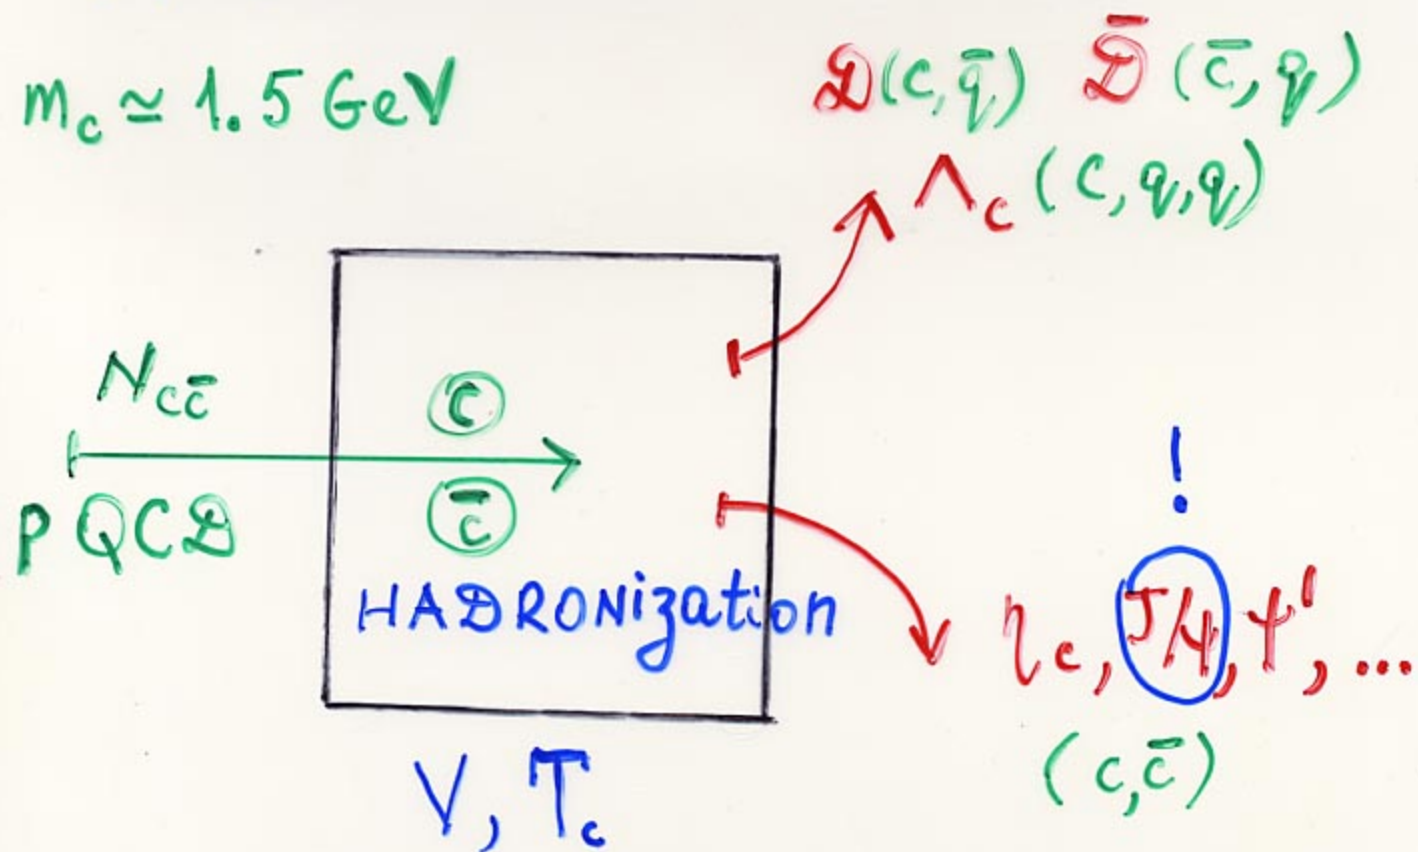 m_c ≃ 1.5 GeV
D(c, q̄) D̄ (c̄, q)
Λ_c (c, q, q)
N_cc̄
c
pQCD
c̄
!
HADRONization
η_c, J/ψ, ψ', ...
(c, c̄)
V, T_c